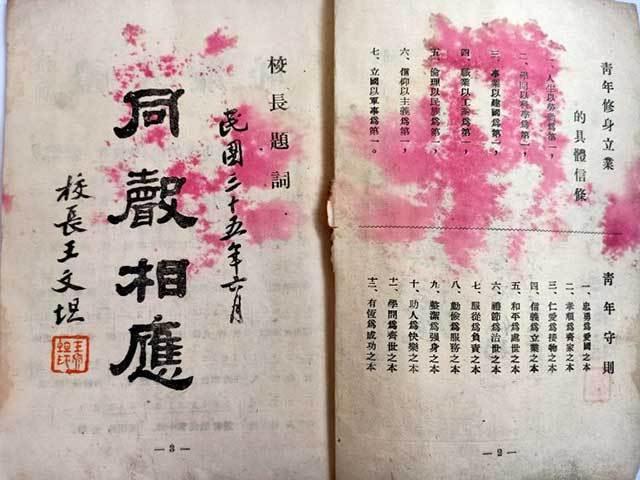 青年修身立業
的具體信條
一、人生以勞動為第一，
二、學問以科學為第一，
三、事業以建國為第一，
四、職業以工業為第一，
五、倫理以民族為第一，
六、信仰以主義為第一，
七、立國以軍事為第一。
青年守則
一、忠勇為愛國之本
二、孝順為齊家之本
三、仁愛為接物之本
四、信義為立業之本
五、和平為處世之本
六、禮節為治世之本
七、服從為負責之本
八、勤儉為服務之本
九、整潔為强身之本
十、助人為快樂之本
十一、學問為濟世之本
十二、有恆為成功之本
— 2 —
校長題詞
民国三十五年六月
同聲相應
校長王文坦
— 3 —